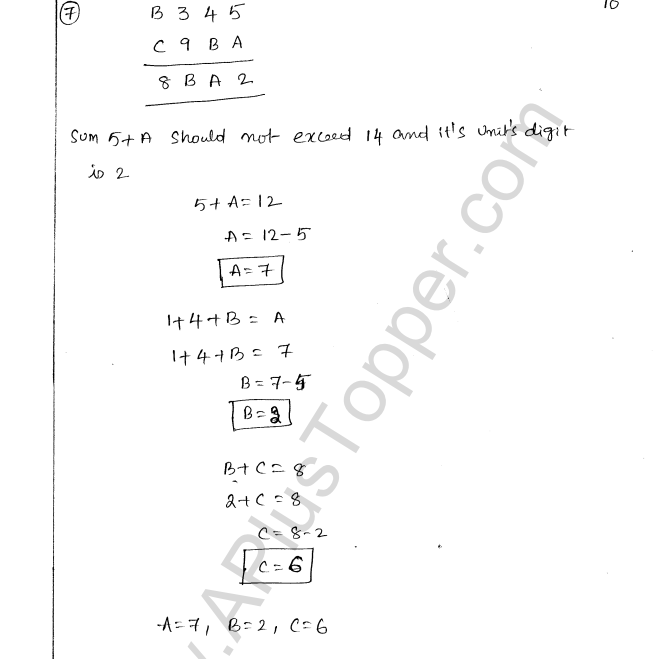 10
7
B 3 4 5
C 9 B A
8 B A 2
Sum 5+A should not exceed 14 and it's unit's digit
is 2
5+A=12
A= 12-5
A=7
1+4+B= A
1+4+B= 7
B=7-5
B=2
B+C=8
2+C=8
C=8-2
C=6
A=7, B=2, C=6
.APlusTopper.com